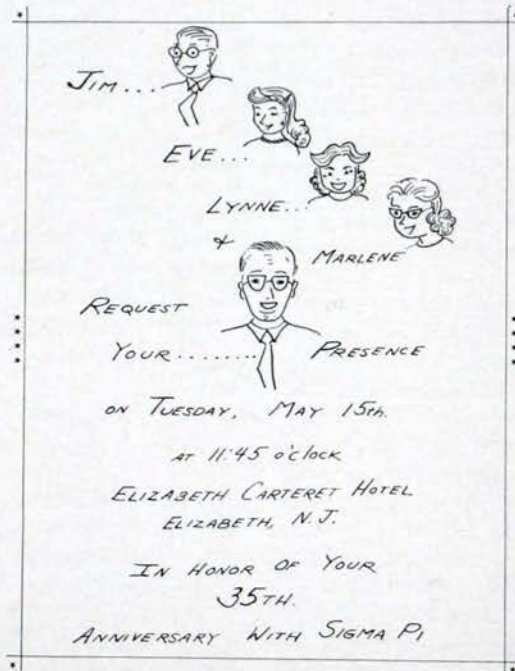 JIM...
EVE...
LYNNE...
& MARLENE
REQUEST
YOUR........ PRESENCE
ON TUESDAY, MAY 15th.
AT 11:45 o'clock
ELIZABETH CARTERET HOTEL
ELIZABETH, N.J.
IN HONOR OF YOUR
35TH.
ANNIVERSARY WITH SIGMA PI